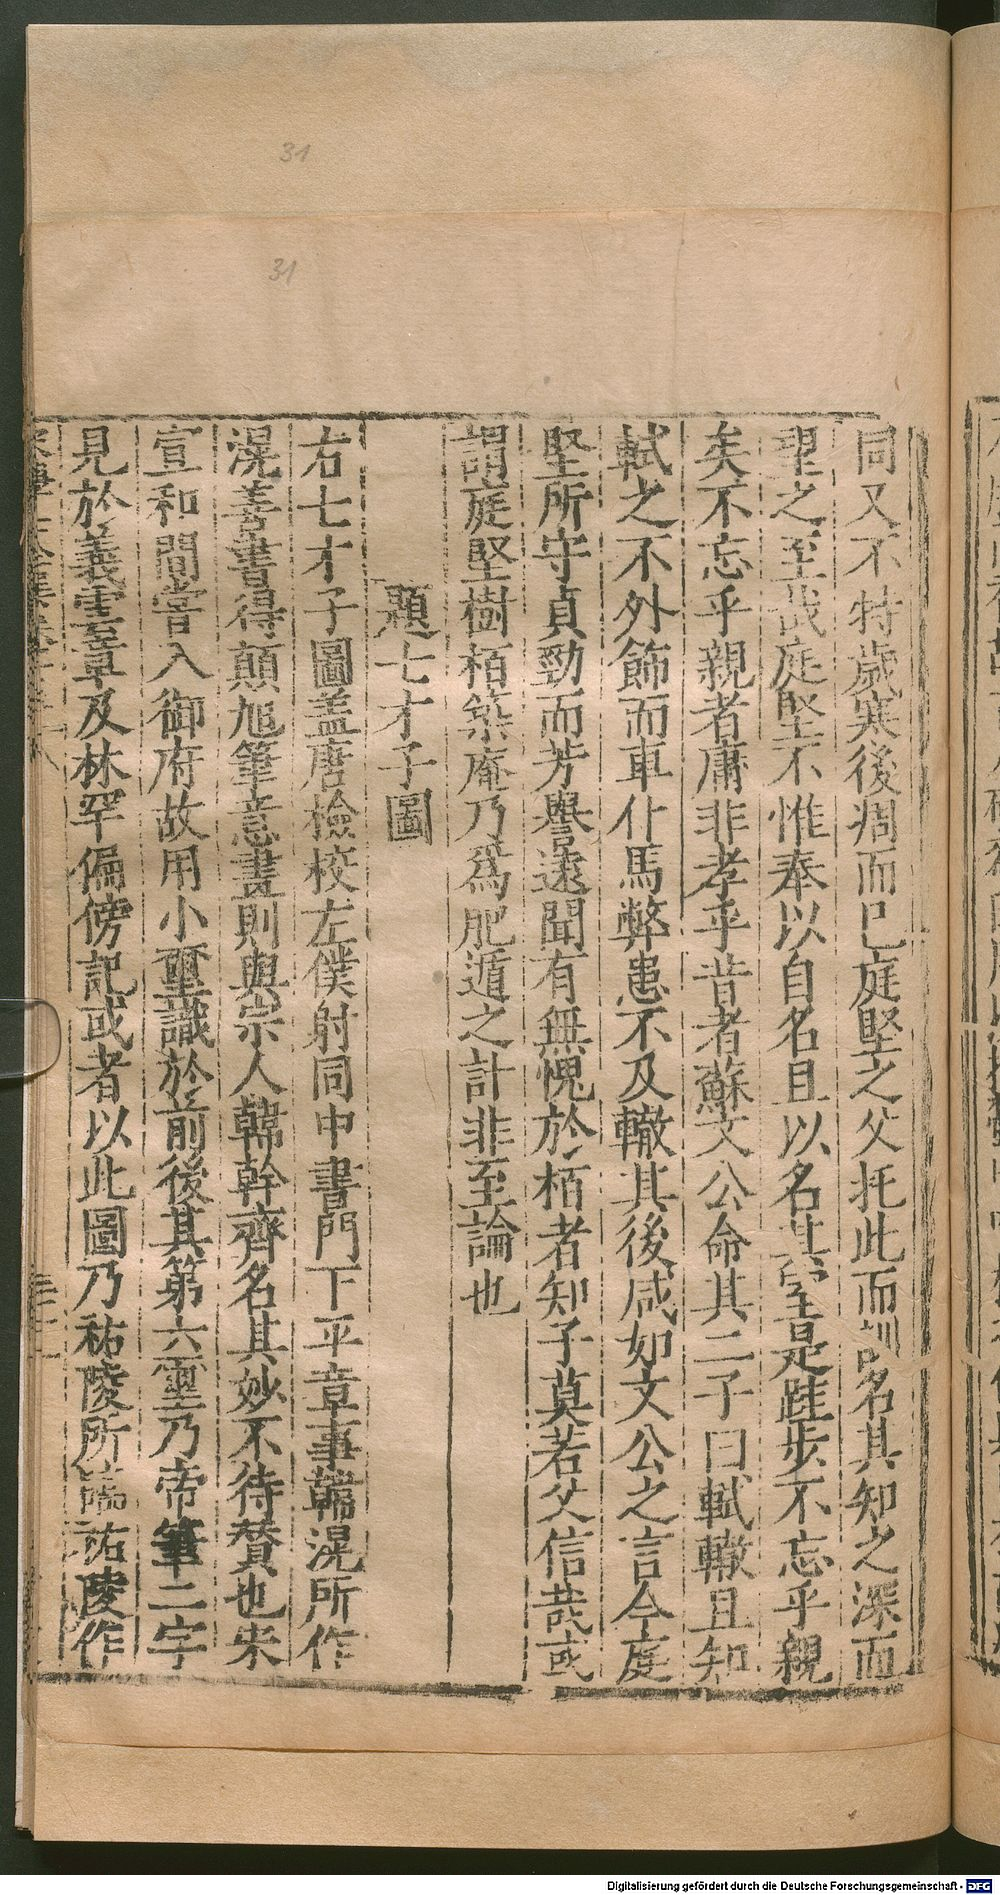 31
31
同又不特歲寒後凋而已庭堅之父托此而訓名其知之深而
望之至哉庭堅不惟奉以自名且以名其室是跬步不忘乎親
矣不忘乎親者庸非孝乎昔者蘇文公命其二子曰軾轍且知
軾之不外飾而車仆馬弊患不及轍其後咸如文公之言今庭
堅所守貞勁而芳譽遠聞有無愧於栢者知子莫若父信哉或
謂庭堅樹栢築庵乃爲肥遁之計非至論也
題七才子圖
右七才子圖盖唐檢校左僕射同中書門下平章事韓滉所作
滉善書得顛旭筆意畫則與宗人韓幹齊名其妙不待賛也宋
宣和間嘗入御府故用小璽識於前後其第六璽乃帝筆二字
見於義雲章及林罕偏傍記或者以此圖乃祐陵所臨祐陵作
Digitalisierung gefördert durch die Deutsche Forschungsgemeinschaft - DFG